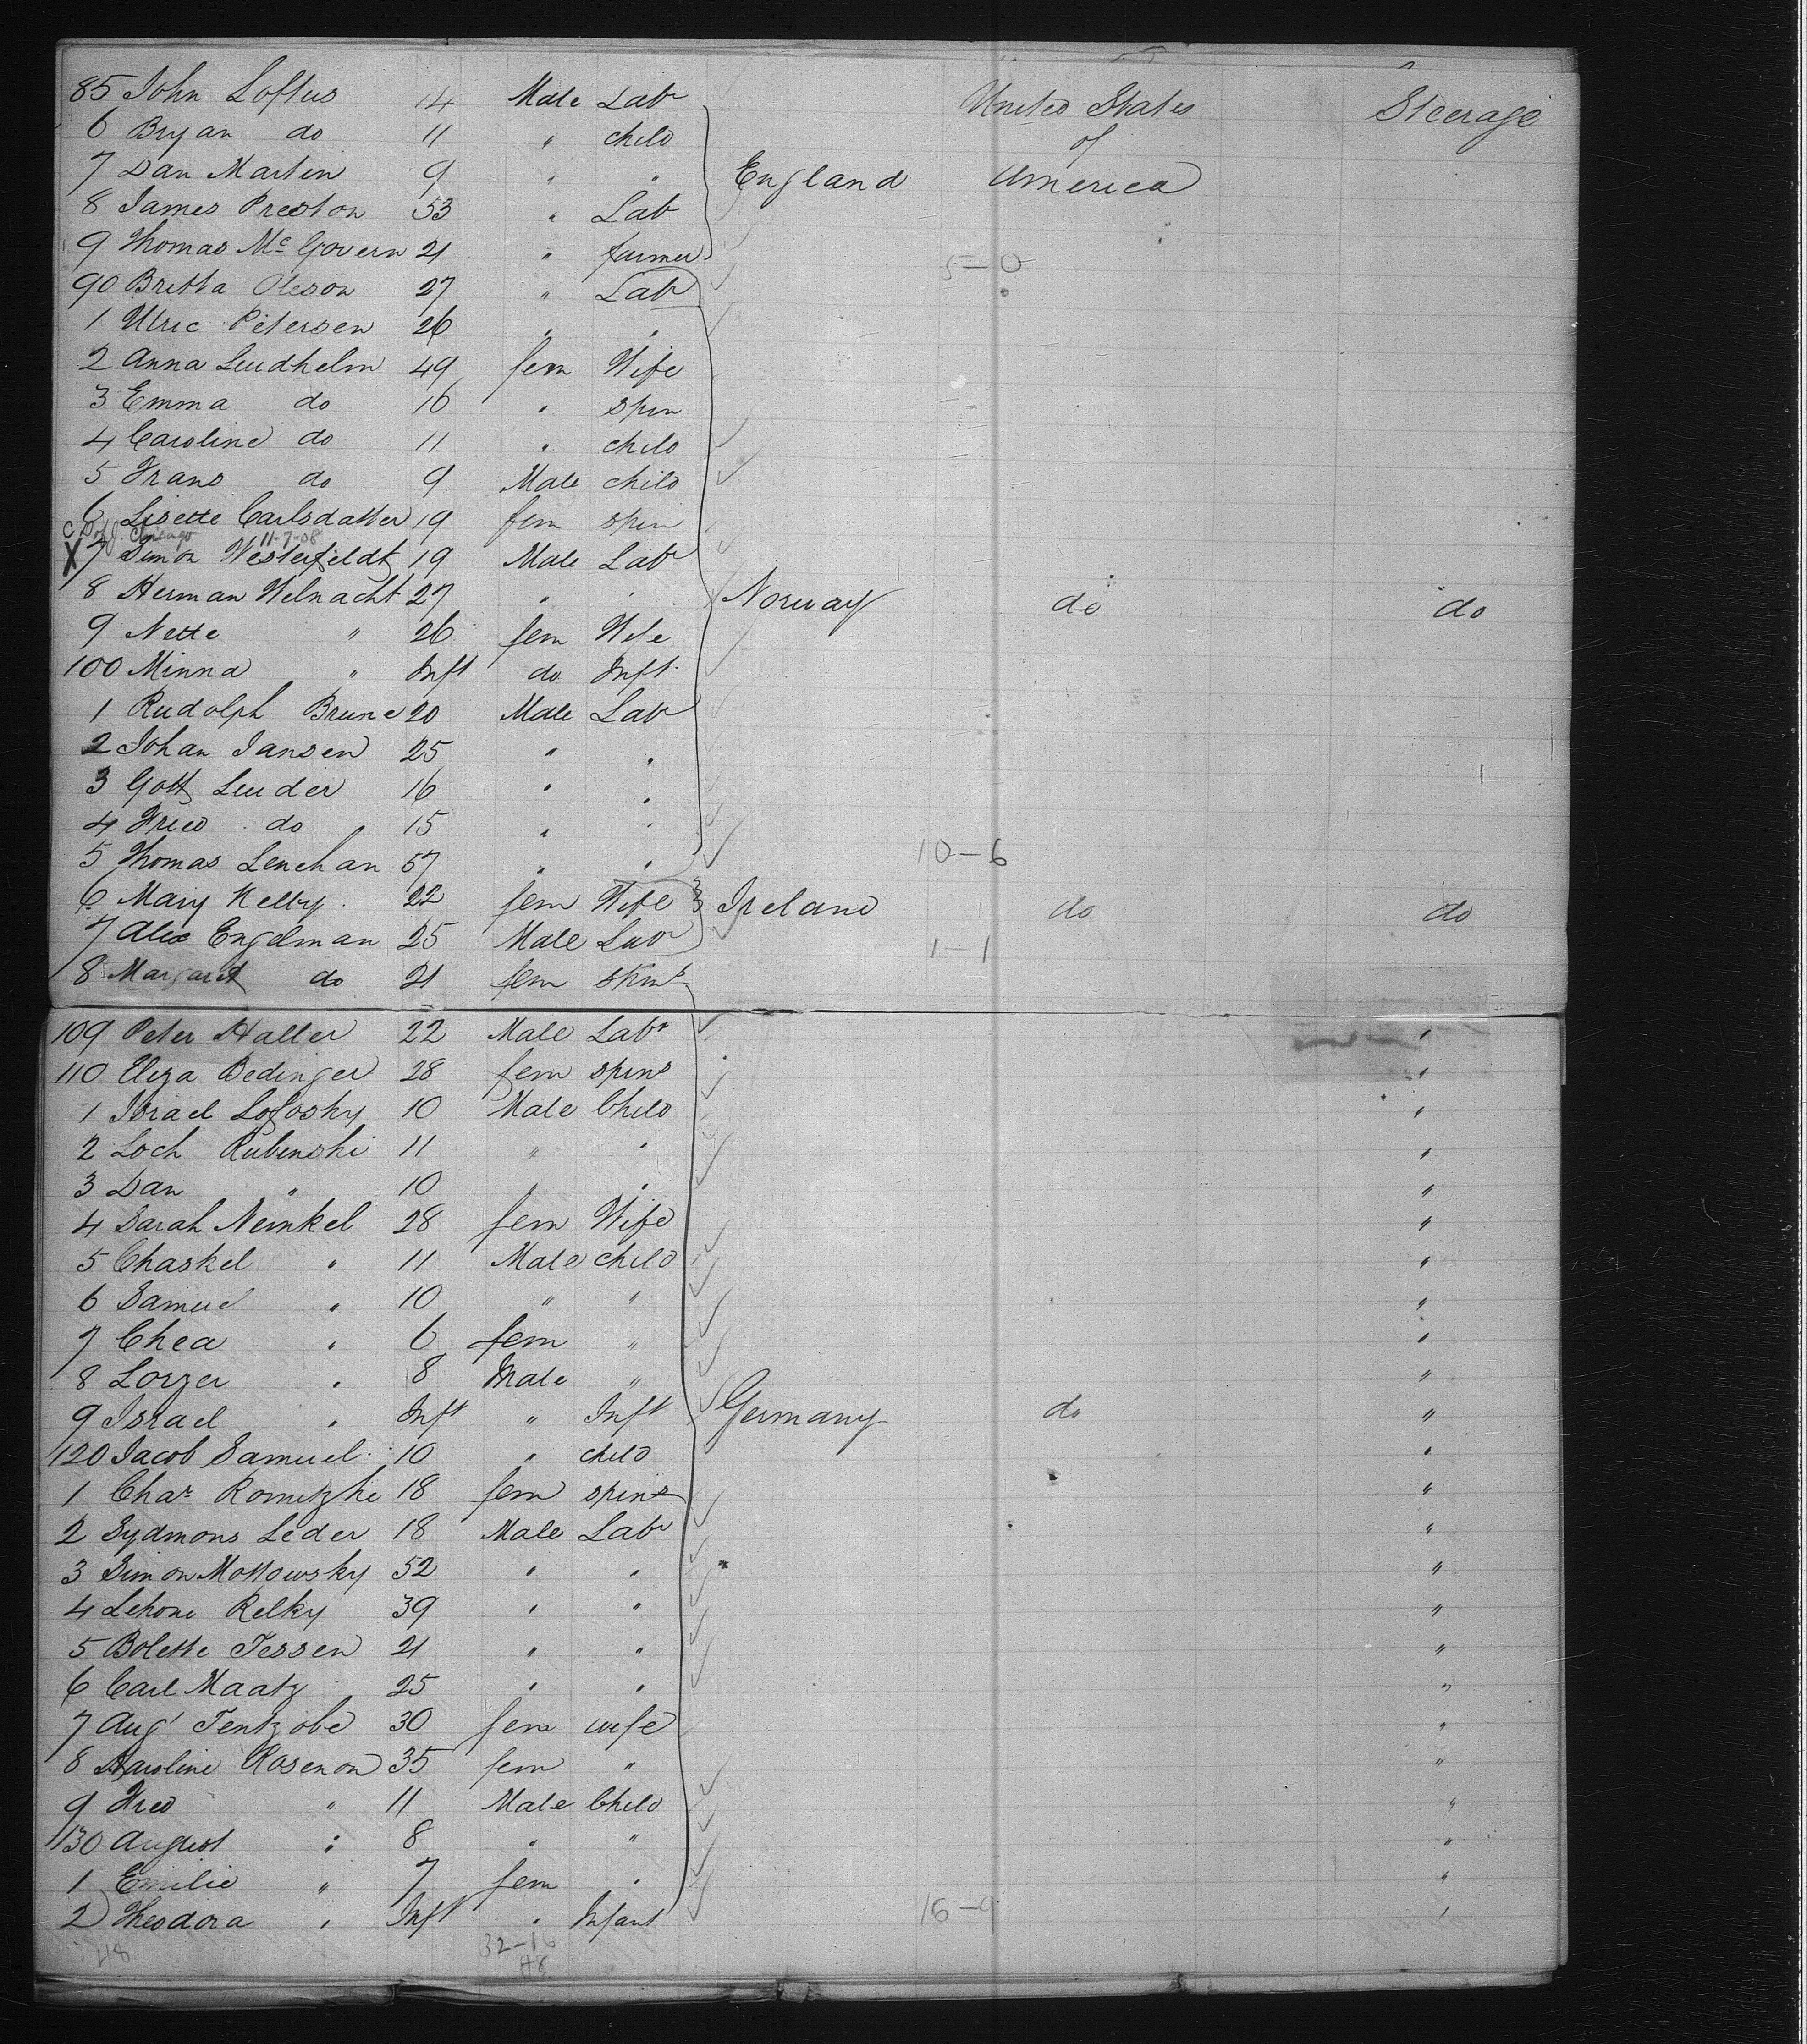 85 John Loftus 14 Male Labr United States Steerage
6 Bryan do 11 " child of
7 Dan Martin 9 " " England America
8 James Preston 53 " Lab
9 Thomas Mc Govern 21 " farmer
5-0
90 Britta Oleson 27 " Lab
1 Ulric Petersen 26 " "
2 Anna Lundhelm 49 fem Wife
3 Emma do 16 " spin
4 Caroline do 11 " child
5 Frans do 9 Male child
6 Lisette Carlsdatter 19 fem spin
Chicago 11-7-08
X 7 Simon Westerfeldt 19 Male Labr
8 Herman Welnacht 27 " " Norway do do
9 Nette " 26 fem Wife
100 Minna " Inft do Inft
1 Rudolph Brune 20 Male Labr
2 Johan Jansen 25 " "
3 Gott Luder 16 " "
4 Fred do 15 " "
5 Thomas Lenehan 57 " " 10-6
6 Mary Kelly 22 fem Wife Ireland do do
7 Alex Engelman 25 Male Labr 1-1
8 Margaret do 21 fem spins
109 Peter Haller 22 Male Labr "
110 Eliza Bedinger 28 fem spins "
1 Israel Lofosky 10 Male Child "
2 Loch Rubinski 11 " " "
3 Dan " 10 " " "
4 Sarah Nemkel 28 fem Wife "
5 Chaskel " 11 Male child "
6 Samuel " 10 " " "
7 Chea " 6 fem " "
8 Lorzer " 8 Male " "
9 Israel " Inft " Inft Germany do "
120 Jacob Samuel 10 " child "
1 Char Romitzki 18 fem spins "
2 Sydmons Leder 18 Male Labr "
3 Simon Mottowsky 52 " " "
4 Lehone Relky 39 " " "
5 Bolette Tessen 21 " " "
6 Carl Maatz 25 " " "
7 Augt Tentzobe 30 fem wife "
8 Karoline Rosenon 35 fem " "
9 Fred " 11 Male Child "
130 August " 8 " " "
1 Emilie " 7 fem " "
2 Theodora " Inft " Infant 16-9 "
48 32-16
48